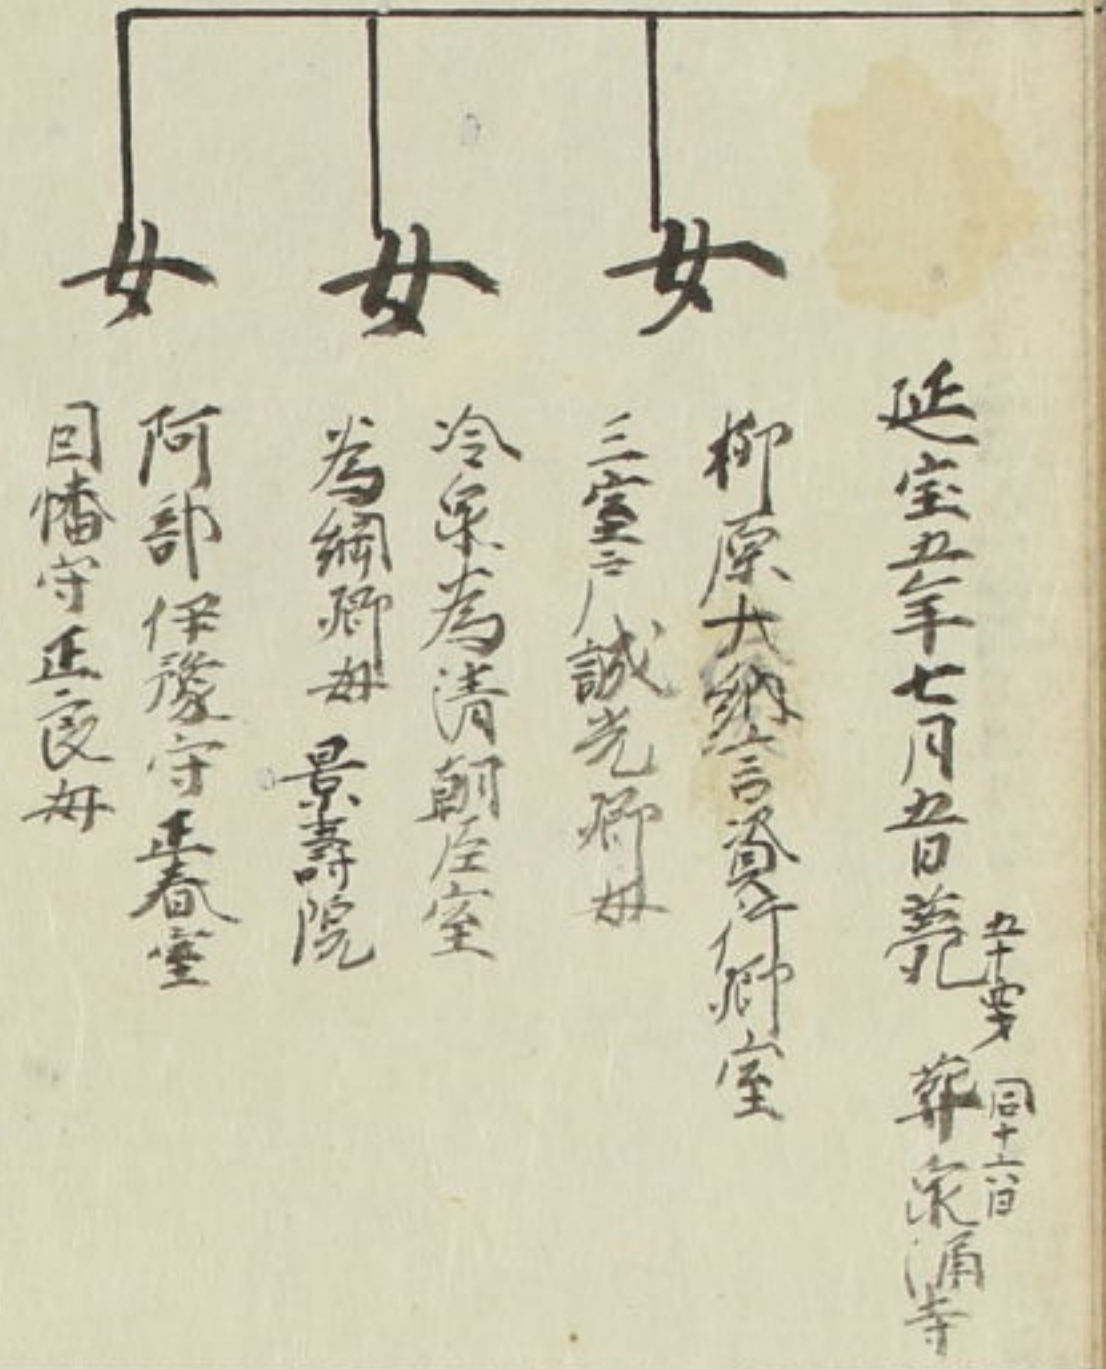 延宝五年七月五日薨 葬泉涌寺
五十四才
同十六日
女
柳原大納言資行卿室
三室戸誠光卿母
女
冷泉為清朝臣室
為綱卿母 景壽院
女
阿部伊豫守正春室
因幡守正良母